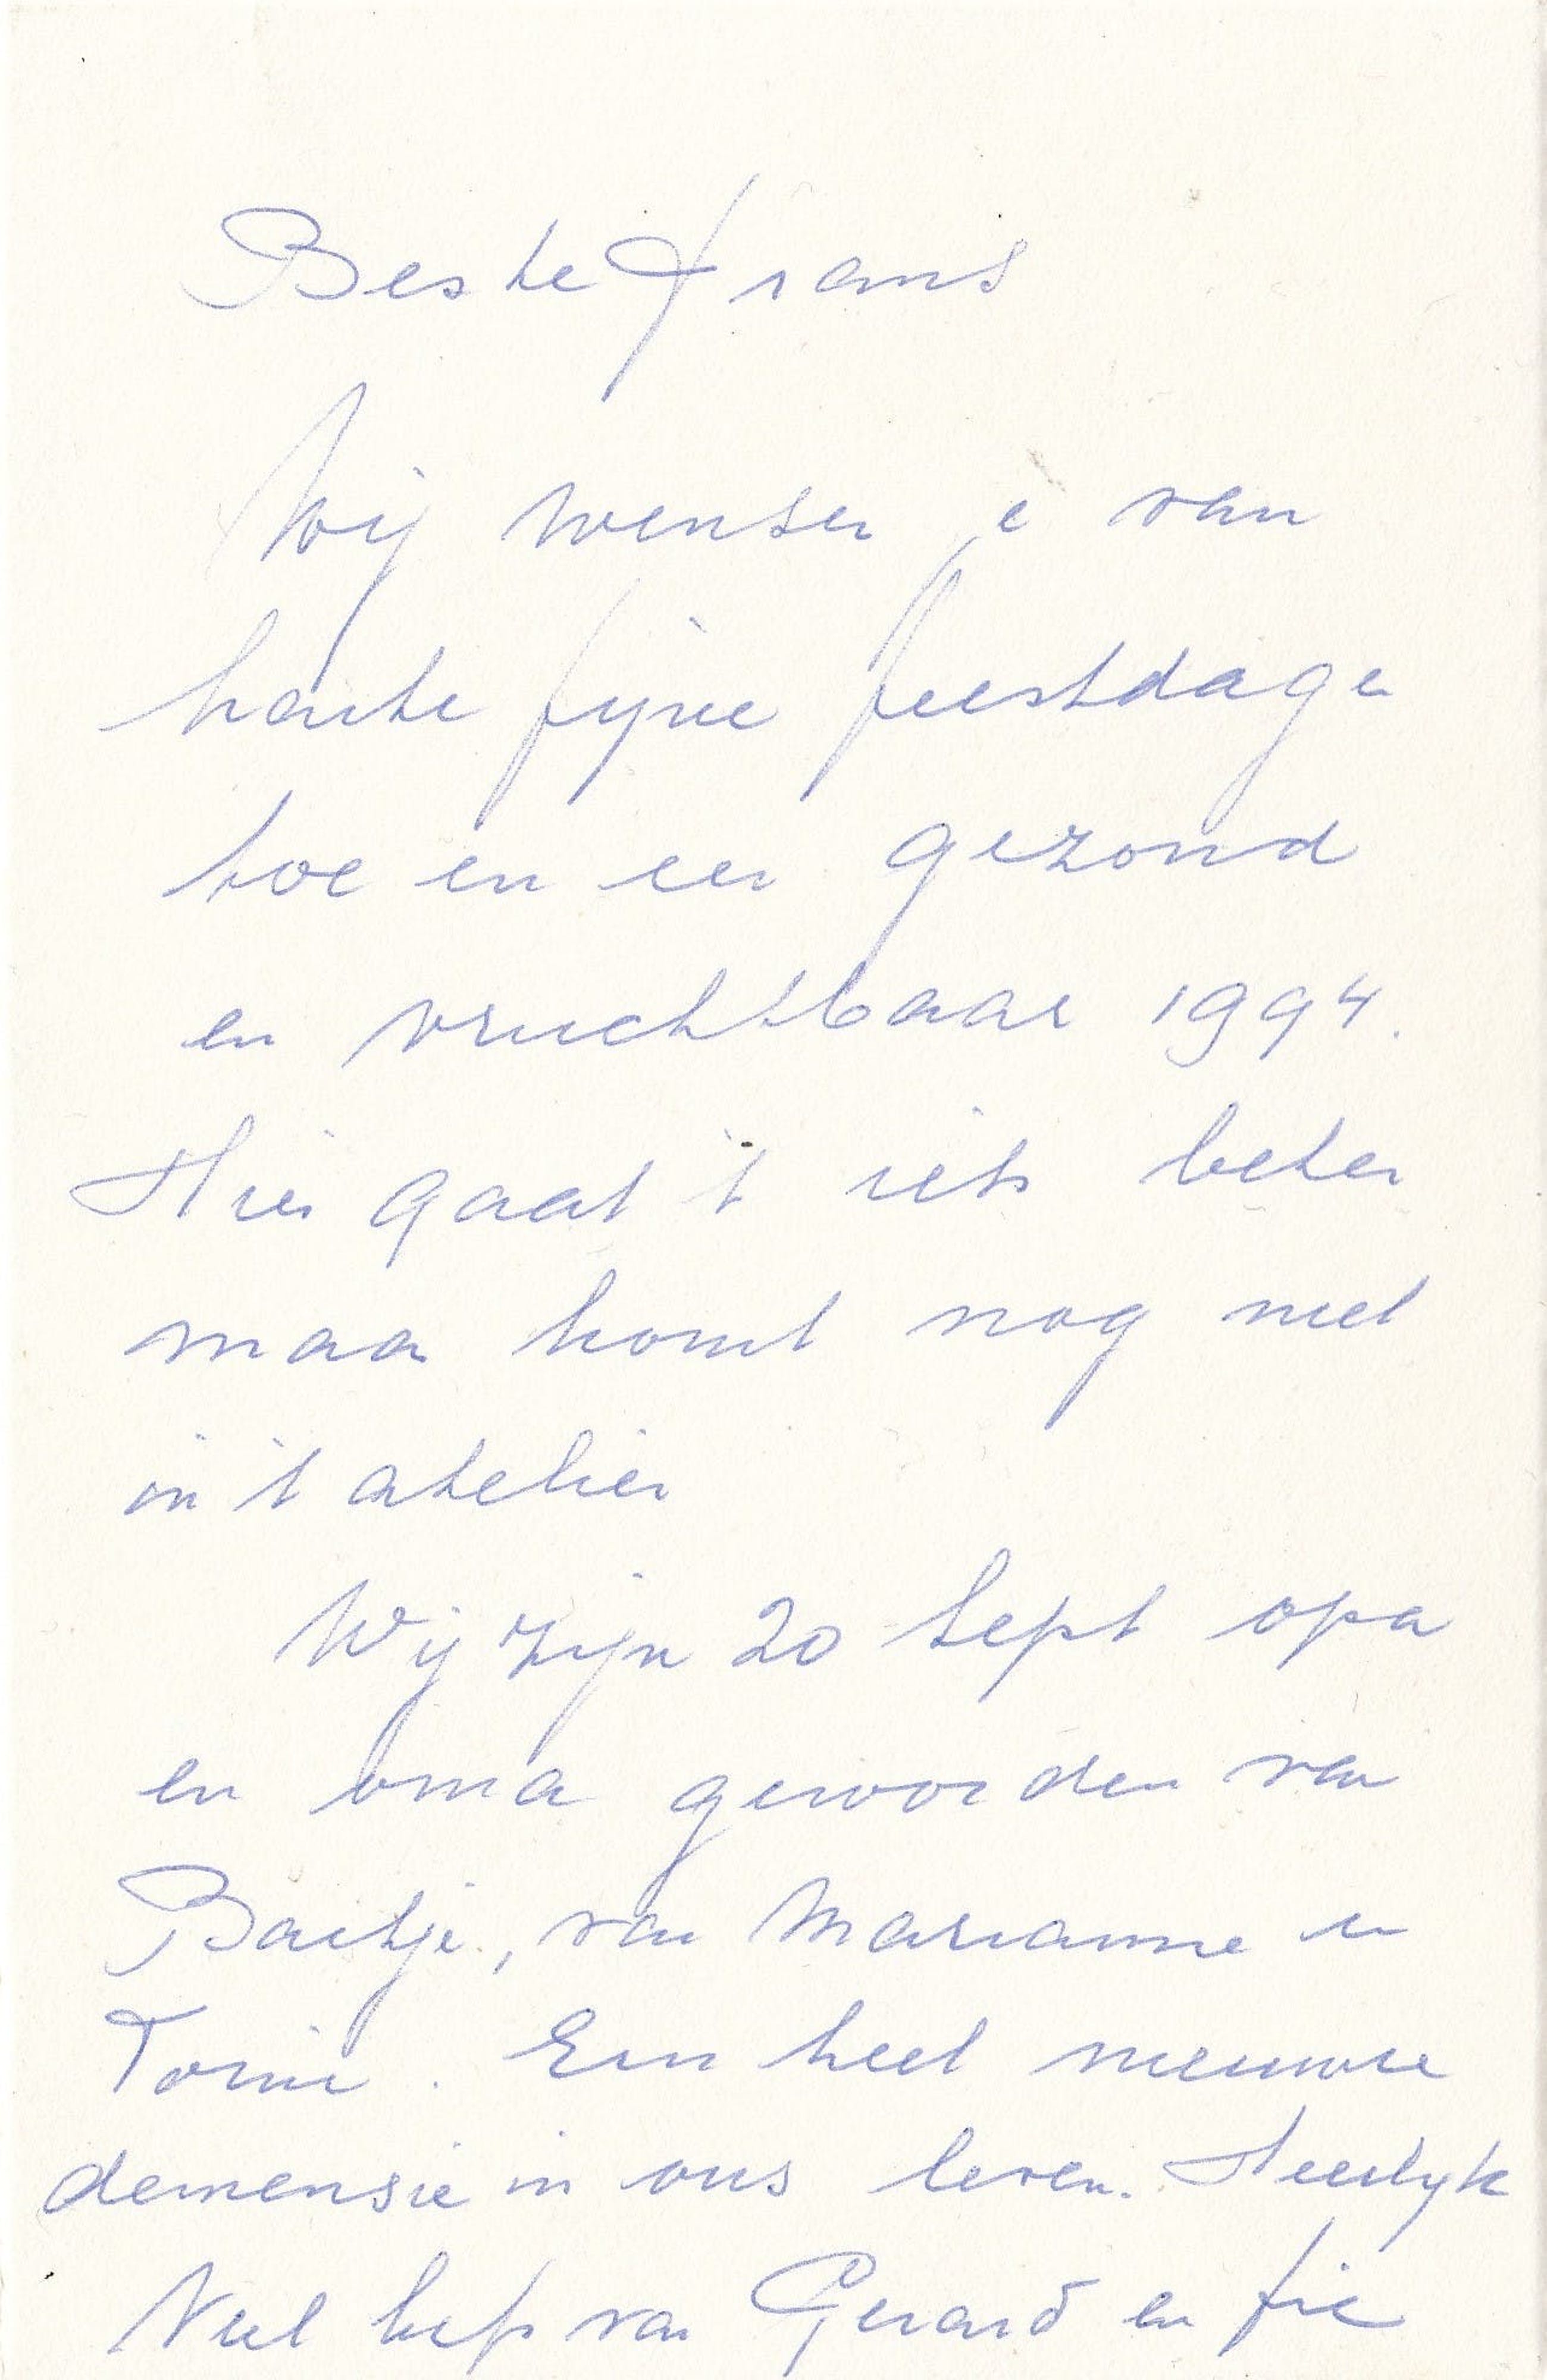 Beste Frans
Wij wensen je van
harte fijne feestdagen
toe en een gezond
en vruchtbaar 1994.
Hier gaat 't iets beter
maar komt nog niet
in 't atelier
Wij zijn 20 sept opa
en oma geworden van
Baitje, van Marianne en
Tonie. Een heel nieuwe
demensie in ons leven. Heerlijk
Veel liefs van Gerard en Fie